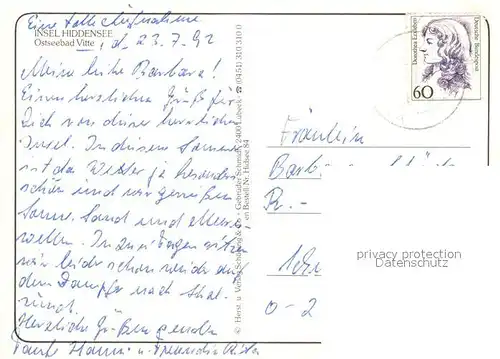 Eine tolle Aufnahme
INSEL HIDDENSEE
Ostseebad Vitte, d. 23.7.92
Meine liebe Barbara!
Einen herzlichen Gruß für
Dich von dieser herrlichen
Insel. In diesem Sommer
ist das Wetter ja besonders
schön und wir genießen
Sonne, Sand und Meeres
wellen. In zwei Tagen sitzen
wir leider schon wieder auf
dem Dampfer nach Stral-
sund.
Herzliche Grüße senden
Tante Hanni u. Freundin Rita
© Herst. u. Verlag Schöning & Co · Gebrüder Schmidt, 2400 Lübeck ☎ (0451) 310 33 10 0
en Bestell Nr. Hidsee 84
Dorothea Erxleben
Deutsche Bundespost
60
Fräulein
Barb
R.-
O-2
privacy protection
Datenschutz